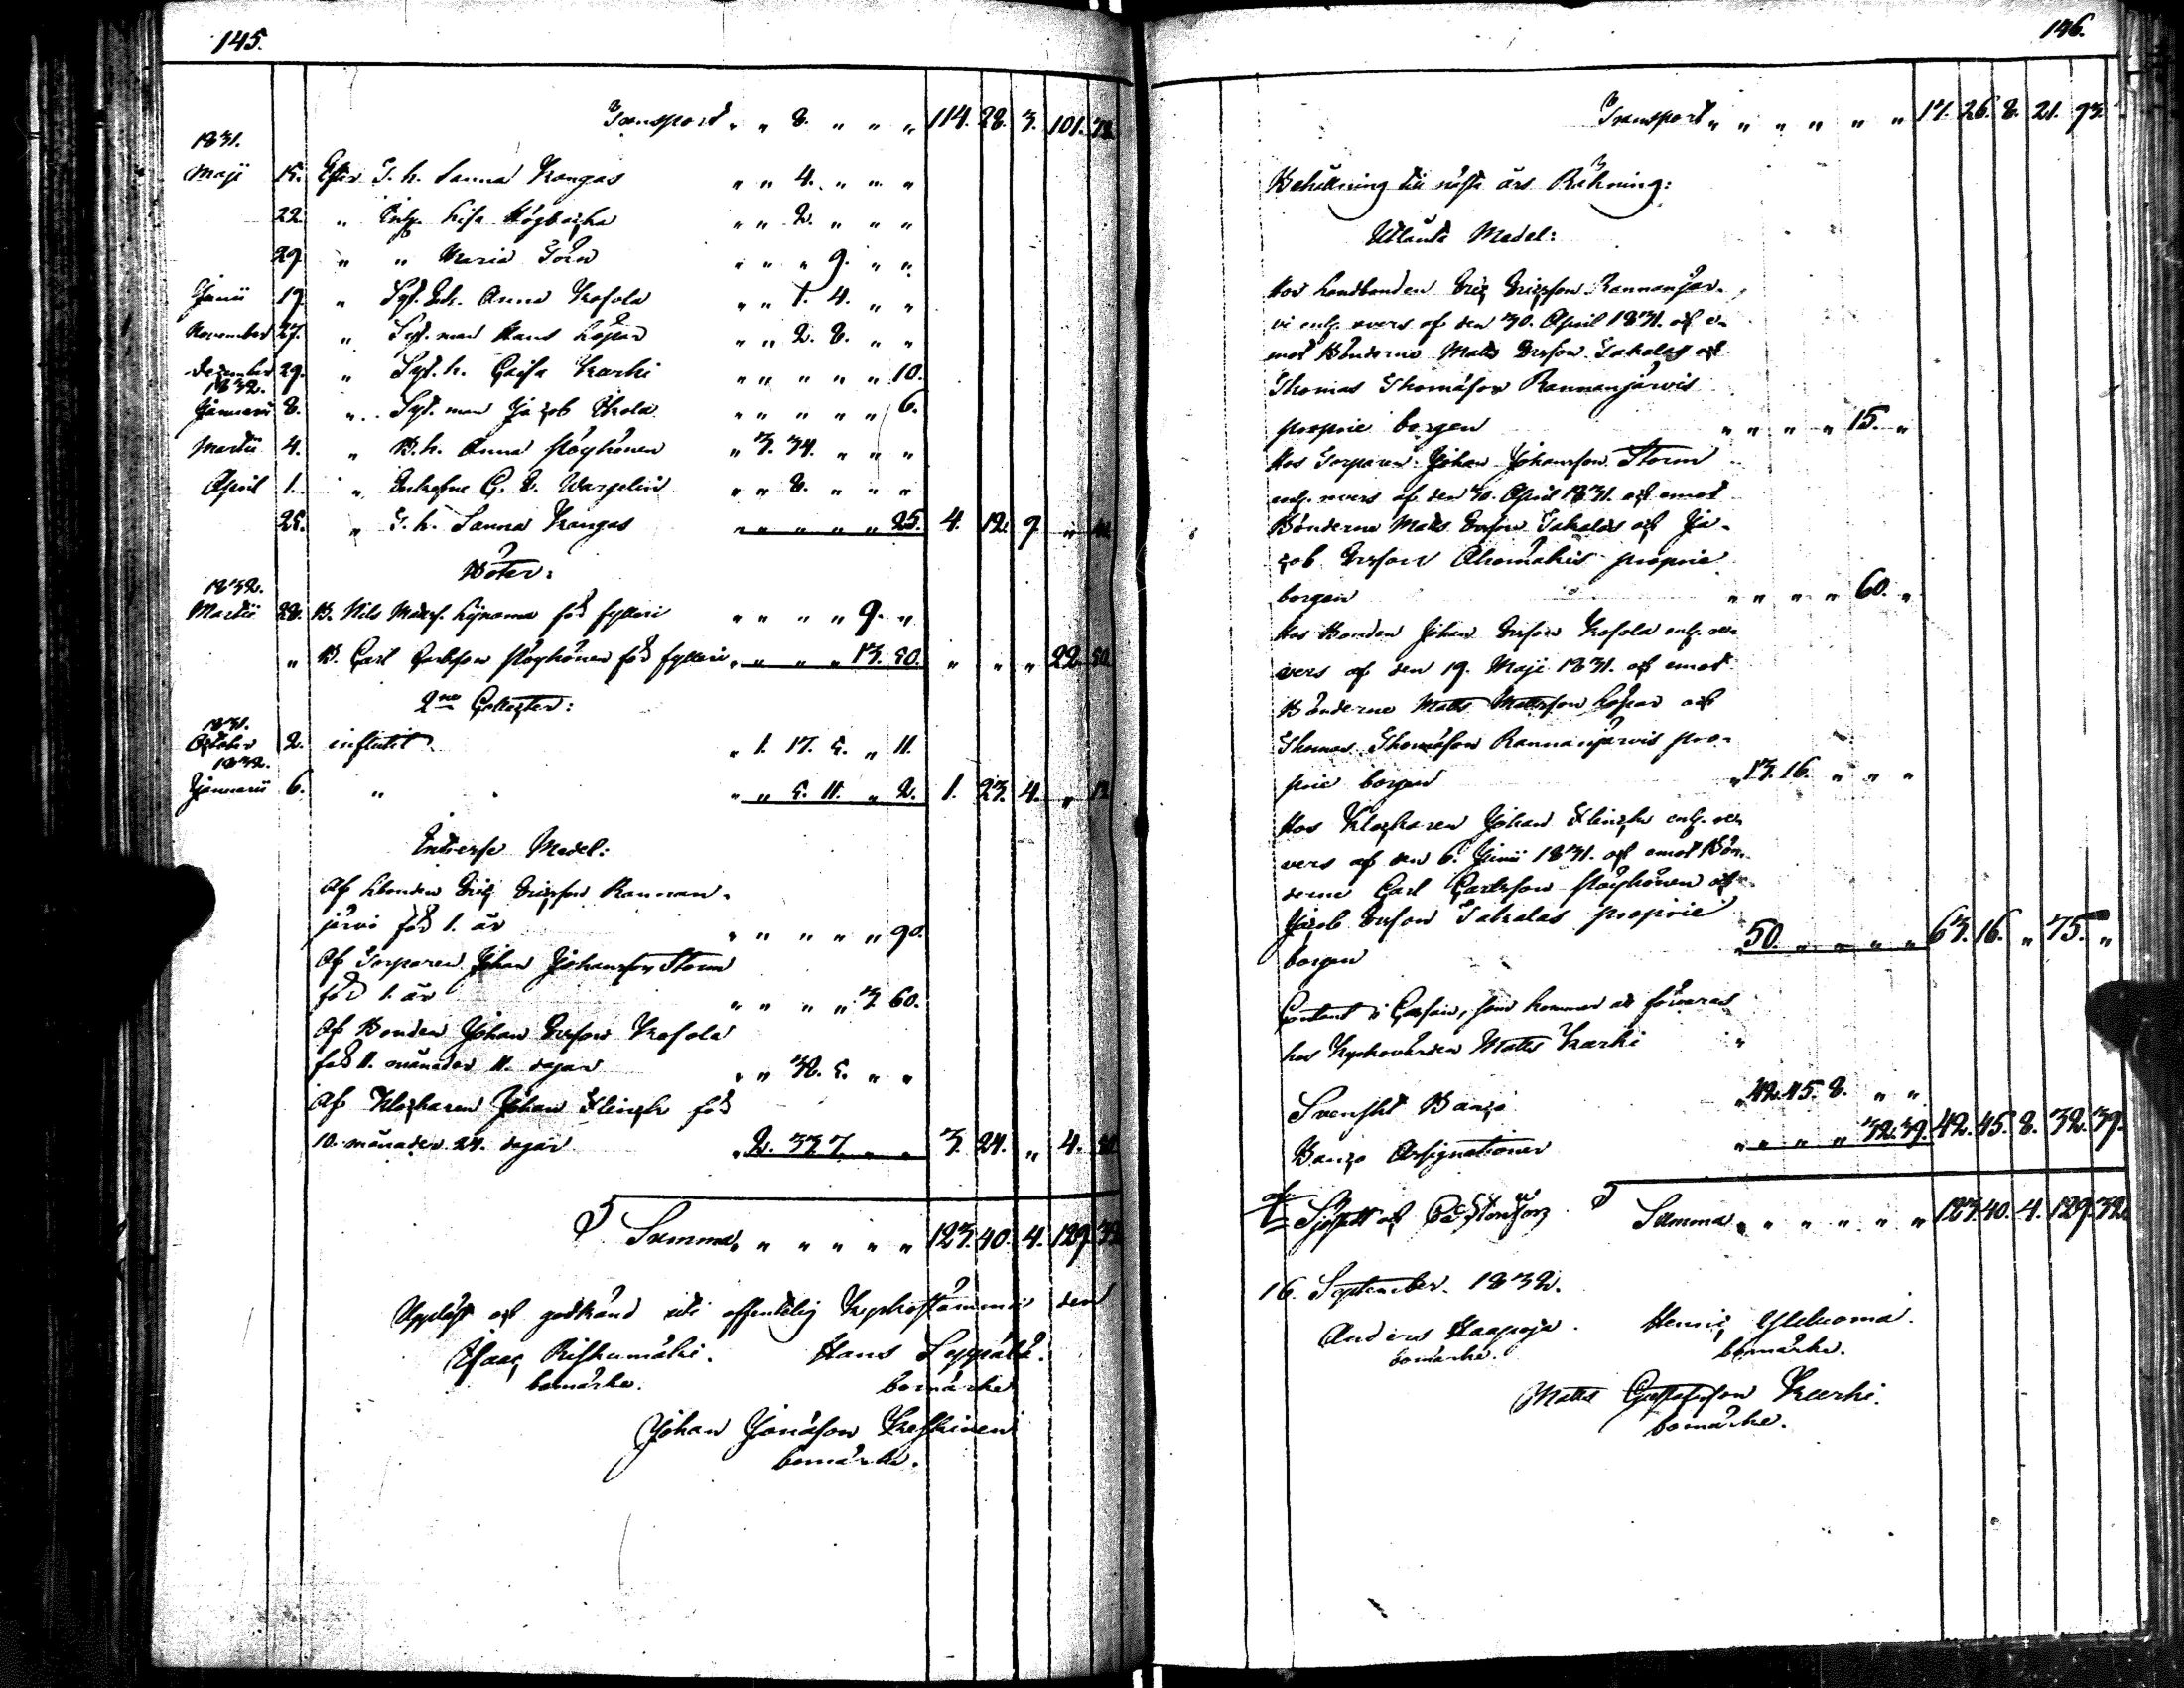 145.
Transport " " 8. " " " 114. 28. 3. 101.
1831.
Maji 15. Efter T. h. Sanna Kangas " " 4. " " "
22. " Enk. Lisa Högbacka " " 2. " " "
29. " " Maria Törn " " " 9. " "
Junii 19. " Syt. Enk. Anna Kosola " " 1. 4. " "
November 27. " Syt. man Hans " " 2. 8. " "
December 29. " Syt. h. Caisa Karhi " " " " " 10.
1832.
Januarii 8. " Syt. man Jacob " " " " " 6.
Martii 4. " B. h. Anna Pöyhönen " 3. 34. " " "
April 1. " C. E. Wargelin " " 8. " " "
25. " T. h. Sanna Kangas " " " " " 25. 4. 12. 9 "
Böter:
1832.
Martii 28. B. Nils Matts. för fylleri " " " " 9. "
" B. Carl Carlsson Pöyhönen för fylleri " " " " 13. 50. " " " 22. 50.
2ne Collecter:
1831.
October 2. influtit " 1. 17. 5. " 11.
1832.
Januarii 6. " " " 5. 11. " 2. 1. 23. 4. "
Intresse Medel:
Af Lbonden Eric Ericsson Rannan-
järvi för 1. år " " " " " 90.
Af Torparen Johan Johansson Storm
för 1. år " " " " 3. 60.
Af Bonden Johan Ersson Kosola
för 11. månader 11. dagar " " 32. 5. " "
Af Klockaren Johan Flinck för
10. månader 24. dagar " 2. 33. 7. " " 3. 24. " 4. 50.
Summa " " " " " " 123. 40. 4. 129. 32.
Uppläst och godkänd uti offentelig Kyrkostämma den
Isaac Riskumäki. Hans Seppälä.
bomärke. bomärke
Johan Jonasson Keskinen
bomärke.
146.
Transport " " " " " " 17. 26. 8. 21. 93.
Behållning till nästa års Räkning:
Utlånta Medel:
Hos Landbonden Eric Ericsson Rannanjär-
vi enl. revers af den 30. April 1831. och e-
mot Bönderne Matts Ersson Takalas och
Thomas Thomasson Rannanjärvis
proprie borgen " " " " 15. "
Hos Torparen Johan Johansson Storm
enl. revers af den 30. April 1831. och emot
Bönderne Matts Ersson Takalas och Ja-
cob Ersson Ahomäkis proprie
borgen " " " " 60. "
Hos Bonden Johan Ersson Kosola enl. re-
vers af den 19. Maji 1831. och emot
Bönderne Matts Mattsson och
Thomas Thomasson Rannanjärvis pro-
prie borgen " 13. 16. " " "
Hos Klockaren Johan Flinck enl. re-
vers af den 6. Junii 1831. och emot Bön-
derne Carl Carlsson Pöyhönen och
Jacob Ersson Takalas proprie
borgen " 50. " " " " 63. 16. " 75. "
Contant i Cassan, som kommer at förvaras
hos Kyrkovärden Matts Karhi "
Svenskt Banco " 42. 45. 8. " "
Banco Assignationer " " " " 32. 39. 42. 45. 8. 32. 39.
Summa " " " " " " 123. 40. 4. 129. 32.
16. September 1832.
Anders Haapoja. Henric Yliluoma.
bomärke. bomärke.
Matts Gustafsson Karhi.
bomärke.